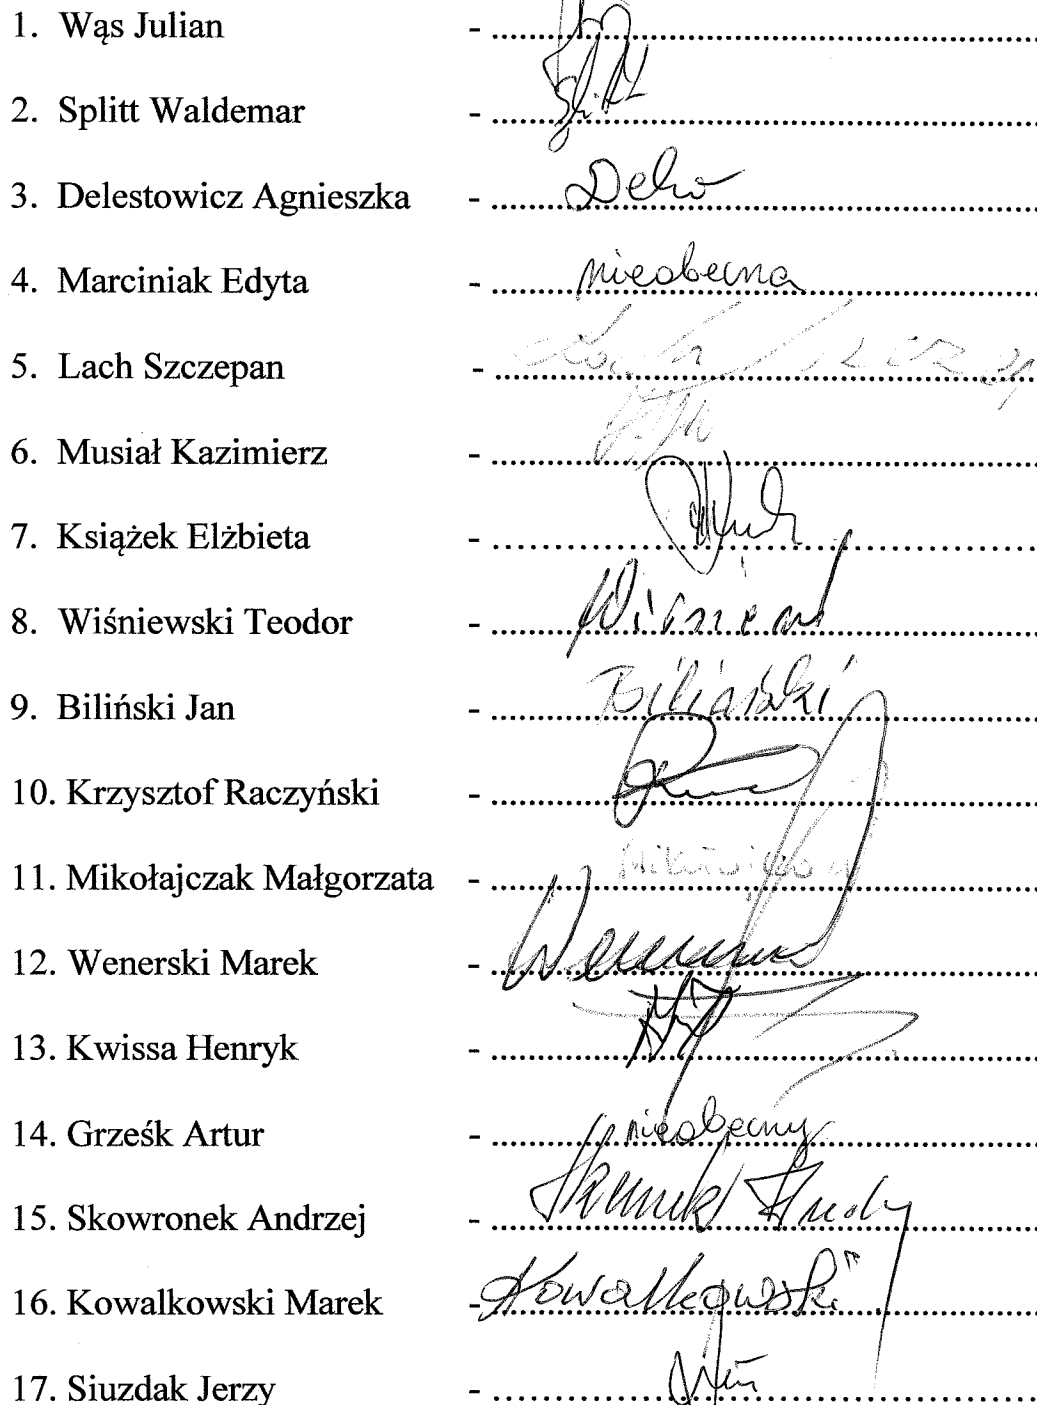 1. Wąs Julian - ..........
2. Splitt Waldemar - .......... Splitt
3. Delestowicz Agnieszka - ..........
4. Marciniak Edyta - .......... nieobecna
5. Lach Szczepan - .......... Lach Szczep
6. Musiał Kazimierz - ..........
7. Książek Elżbieta - ..........
8. Wiśniewski Teodor - ..........
9. Biliński Jan - .......... Biliński
10. Krzysztof Raczyński - ..........
11. Mikołajczak Małgorzata - ..........
12. Wenerski Marek - ..........
13. Kwissa Henryk - ..........
14. Grześk Artur - .......... nieobecny
15. Skowronek Andrzej - ..........
16. Kowalkowski Marek - .......... Kowalkowski
17. Siuzdak Jerzy - ..........